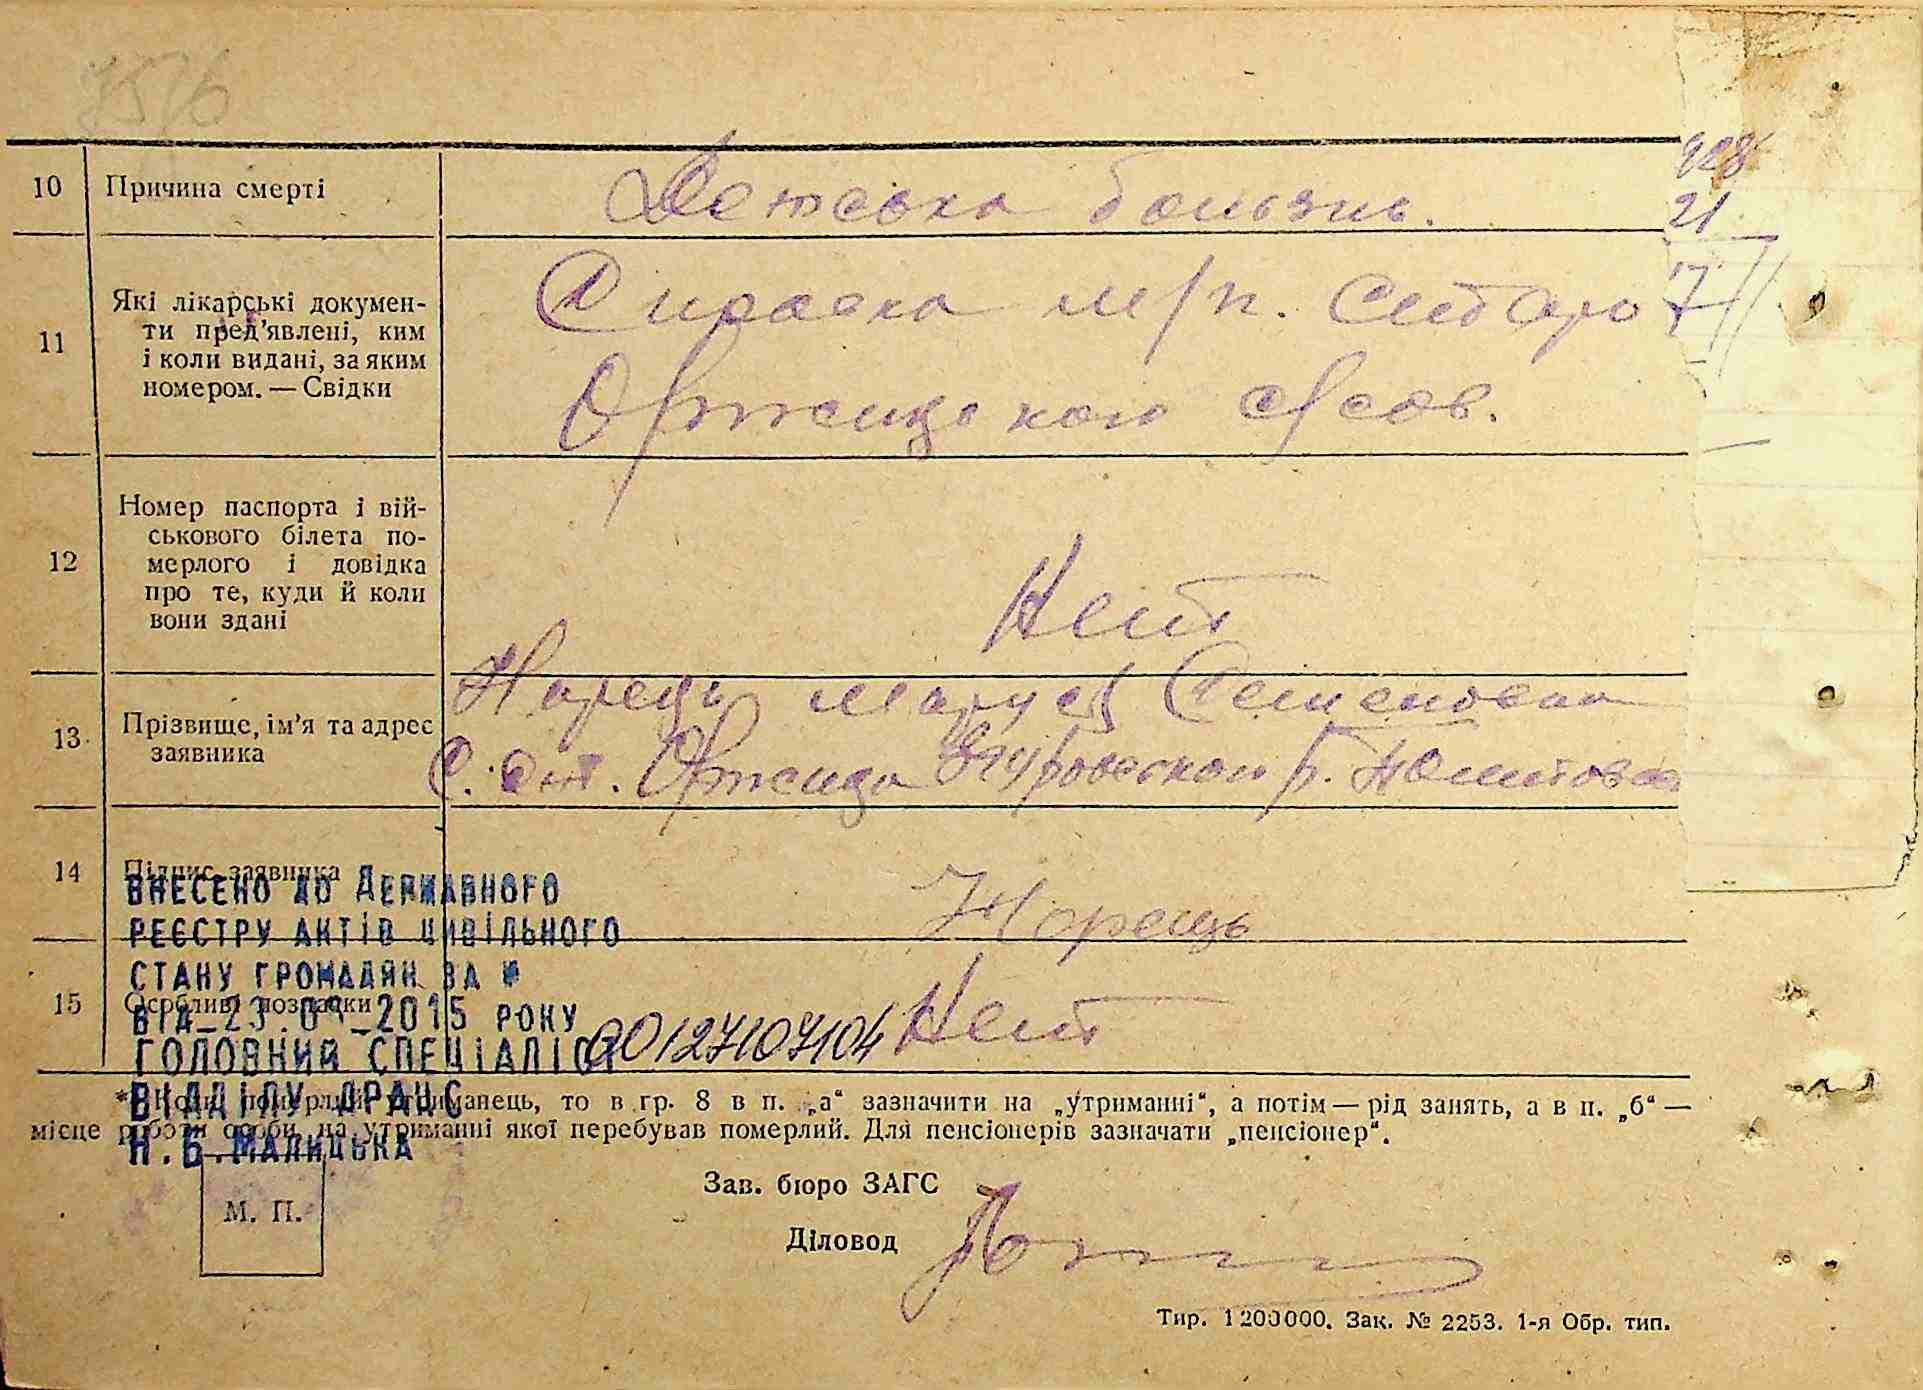 7576
10 Причина смерті Детська бользнь.
928
21
7
11 Які лікарські докумен-
ти пред'явлені, ким
і коли видані, за яким
номером. — Свідки
м/п.
Оржицького
12 Номер паспорта і вій-
ськового білета по-
мерлого і довідка
про те, куди й коли
вони здані
Нет
13 Прізвище, ім'я та адрес
заявника
Маруся Семеновна
с. Оржица
14 Підпис заявника
15 Особливі позначки Нет
ВНЕСЕНО ДО ДЕРЖАВНОГО
РЕЄСТРУ АКТІВ ЦИВІЛЬНОГО
СТАНУ ГРОМАДЯН ЗА №
00127107104
ВІД 23.09 2015 РОКУ
ГОЛОВНИЙ СПЕЦІАЛІСТ
ВІДДІЛУ ДРАЦС
Н.Б.МАЛИЦЬКА
* Коли померлий утриманець, то в гр. 8 в п. „а“ зазначити на „утриманні“, а потім — рід занять, а в п. „б“ —
місце роботи особи, на утриманні якої перебував померлий. Для пенсіонерів зазначати „пенсіонер“.
Зав. бюро ЗАГС
М. П.
Діловод
Тир. 1200000. Зак. № 2253. 1-я Обр. тип.